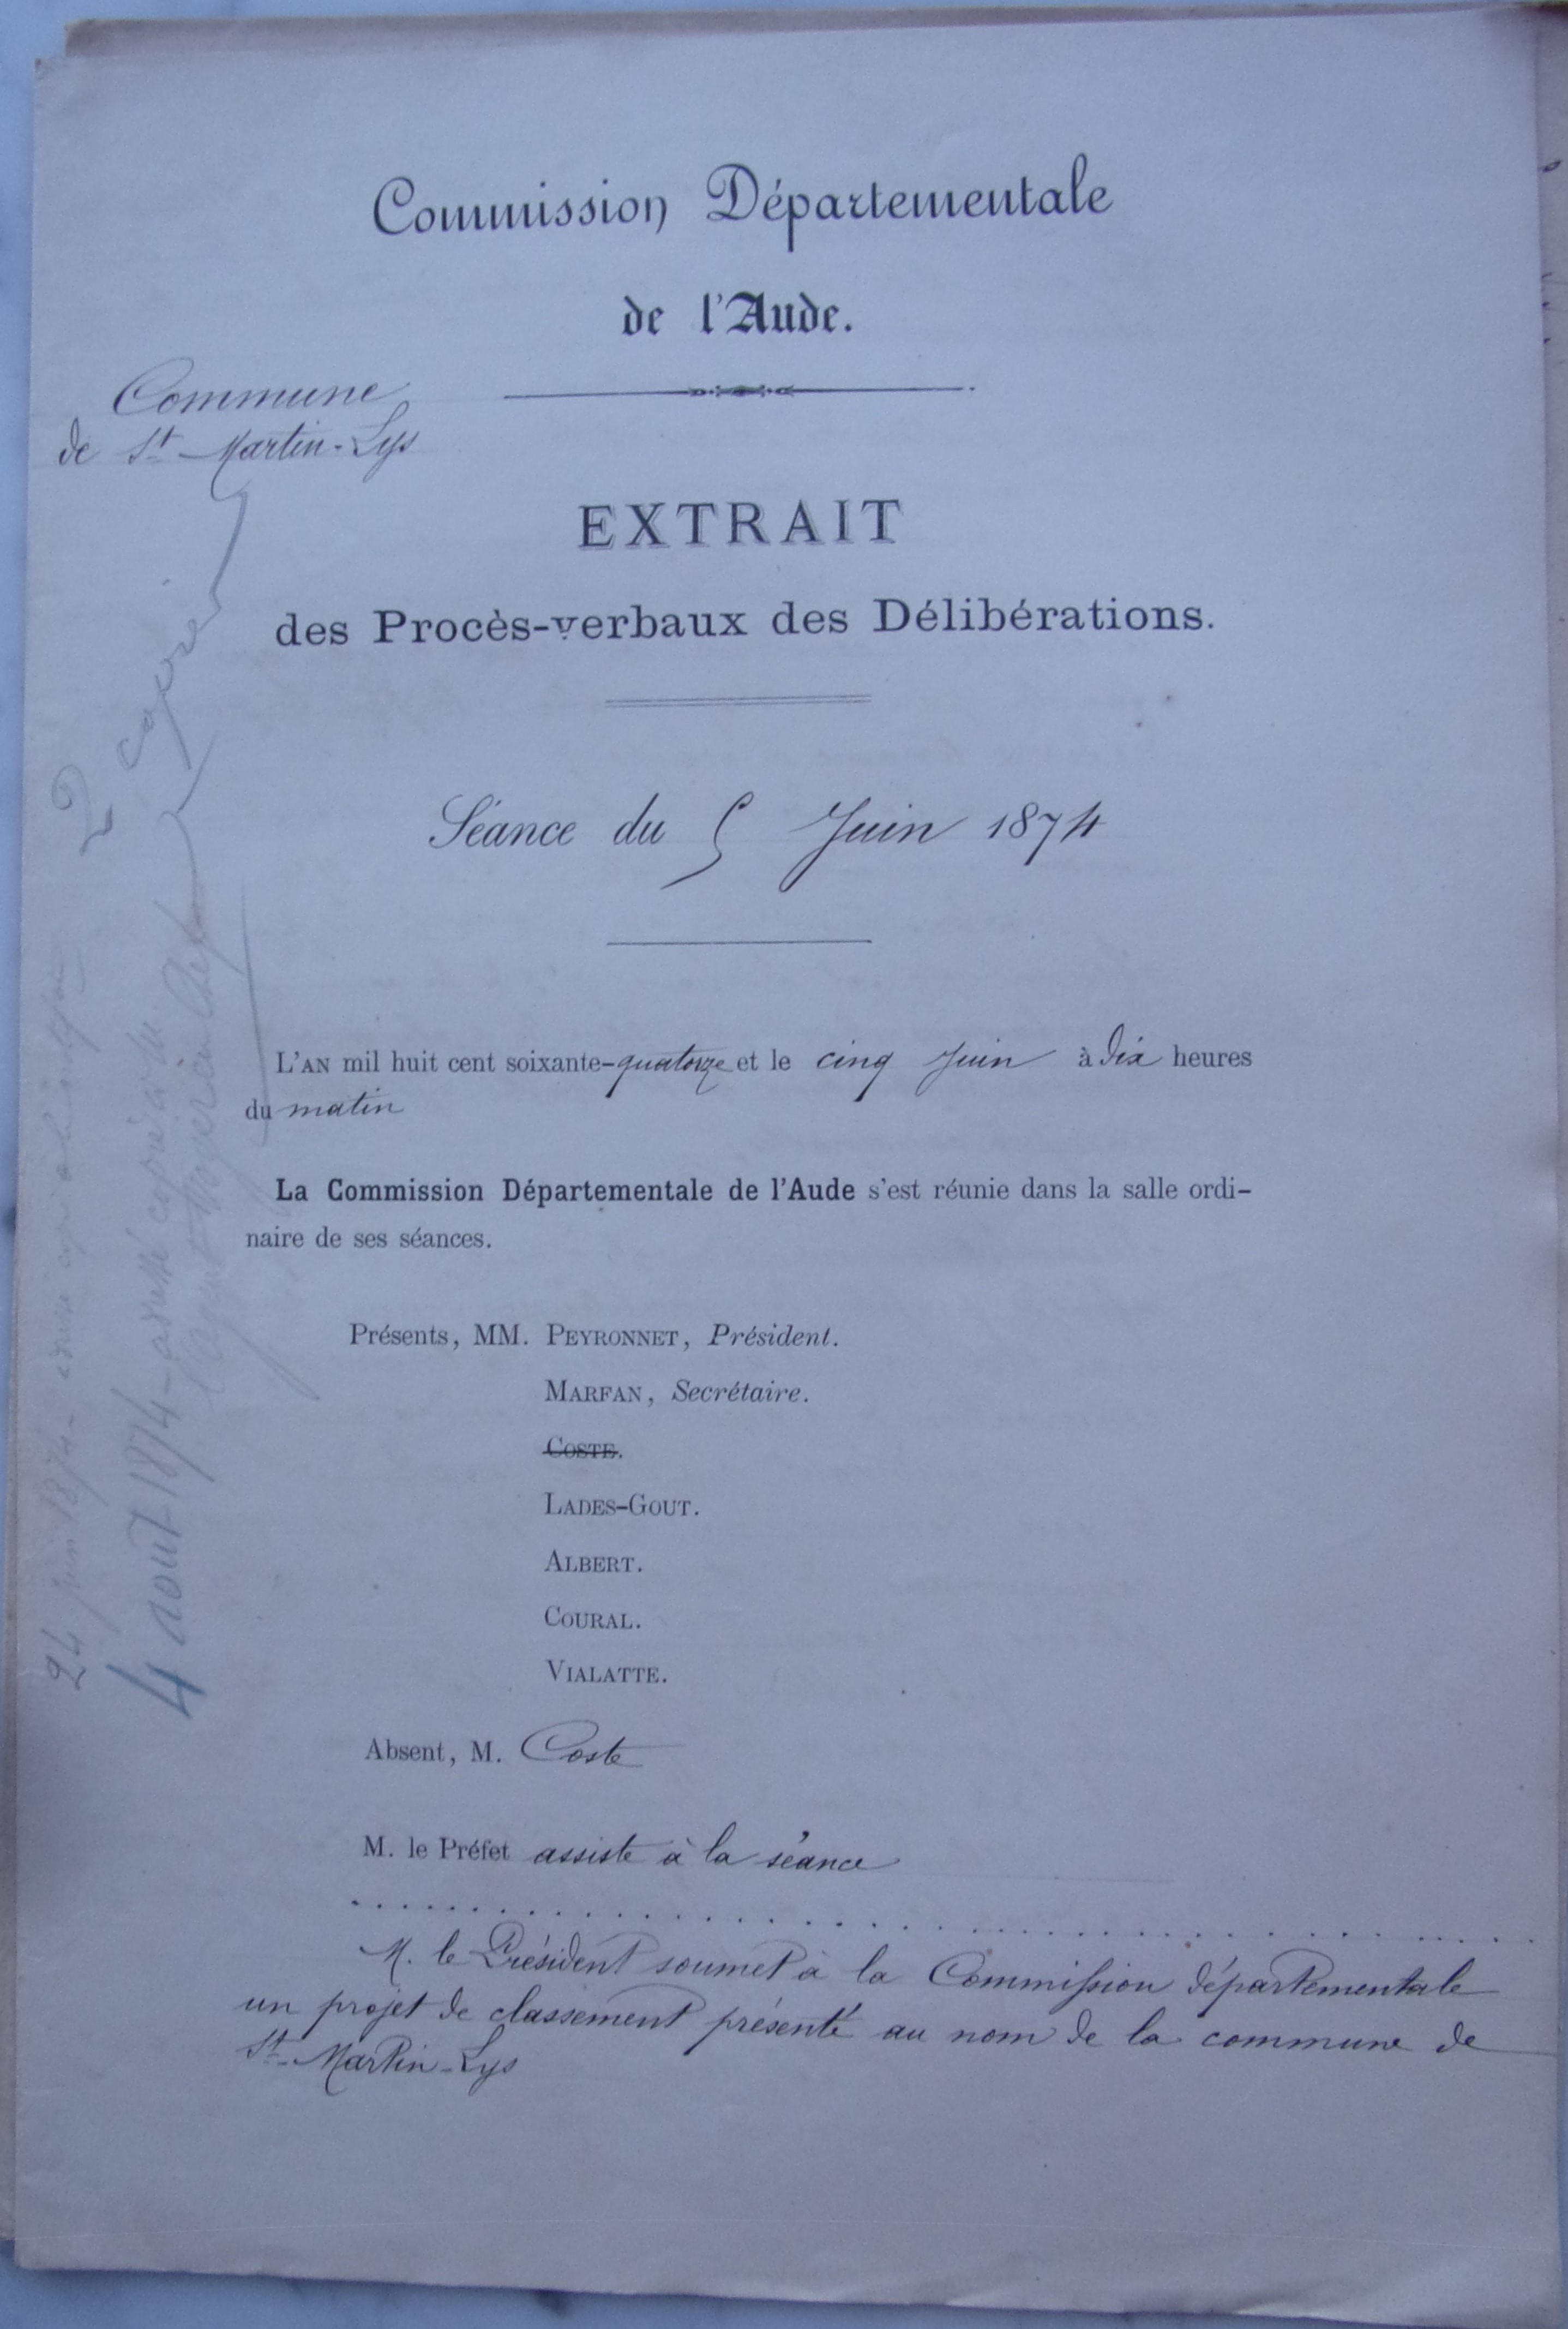 Commission Départementale
de l'Aude.
Commune
de St Martin-Lys
EXTRAIT
des Procès-verbaux des Délibérations.
2 copies
Séance du 5 Juin 1874
L'AN mil huit cent soixante-quatorze et le cinq Juin à dix heures
du matin
La Commission Départementale de l'Aude s'est réunie dans la salle ordi-
naire de ses séances.
Présents, MM. PEYRONNET, Président.
MARFAN, Secrétaire.
COSTE.
LADES-GOUT.
ALBERT.
COURAL.
VIALATTE.
Absent, M. Coste
M. le Préfet assiste à la séance
M. le Président soumet à la Commission départementale
un projet de classement présenté au nom de la commune de
St-Martin-Lys
24 juin 1874 - copie
4 aout 1874 - adressé copie à